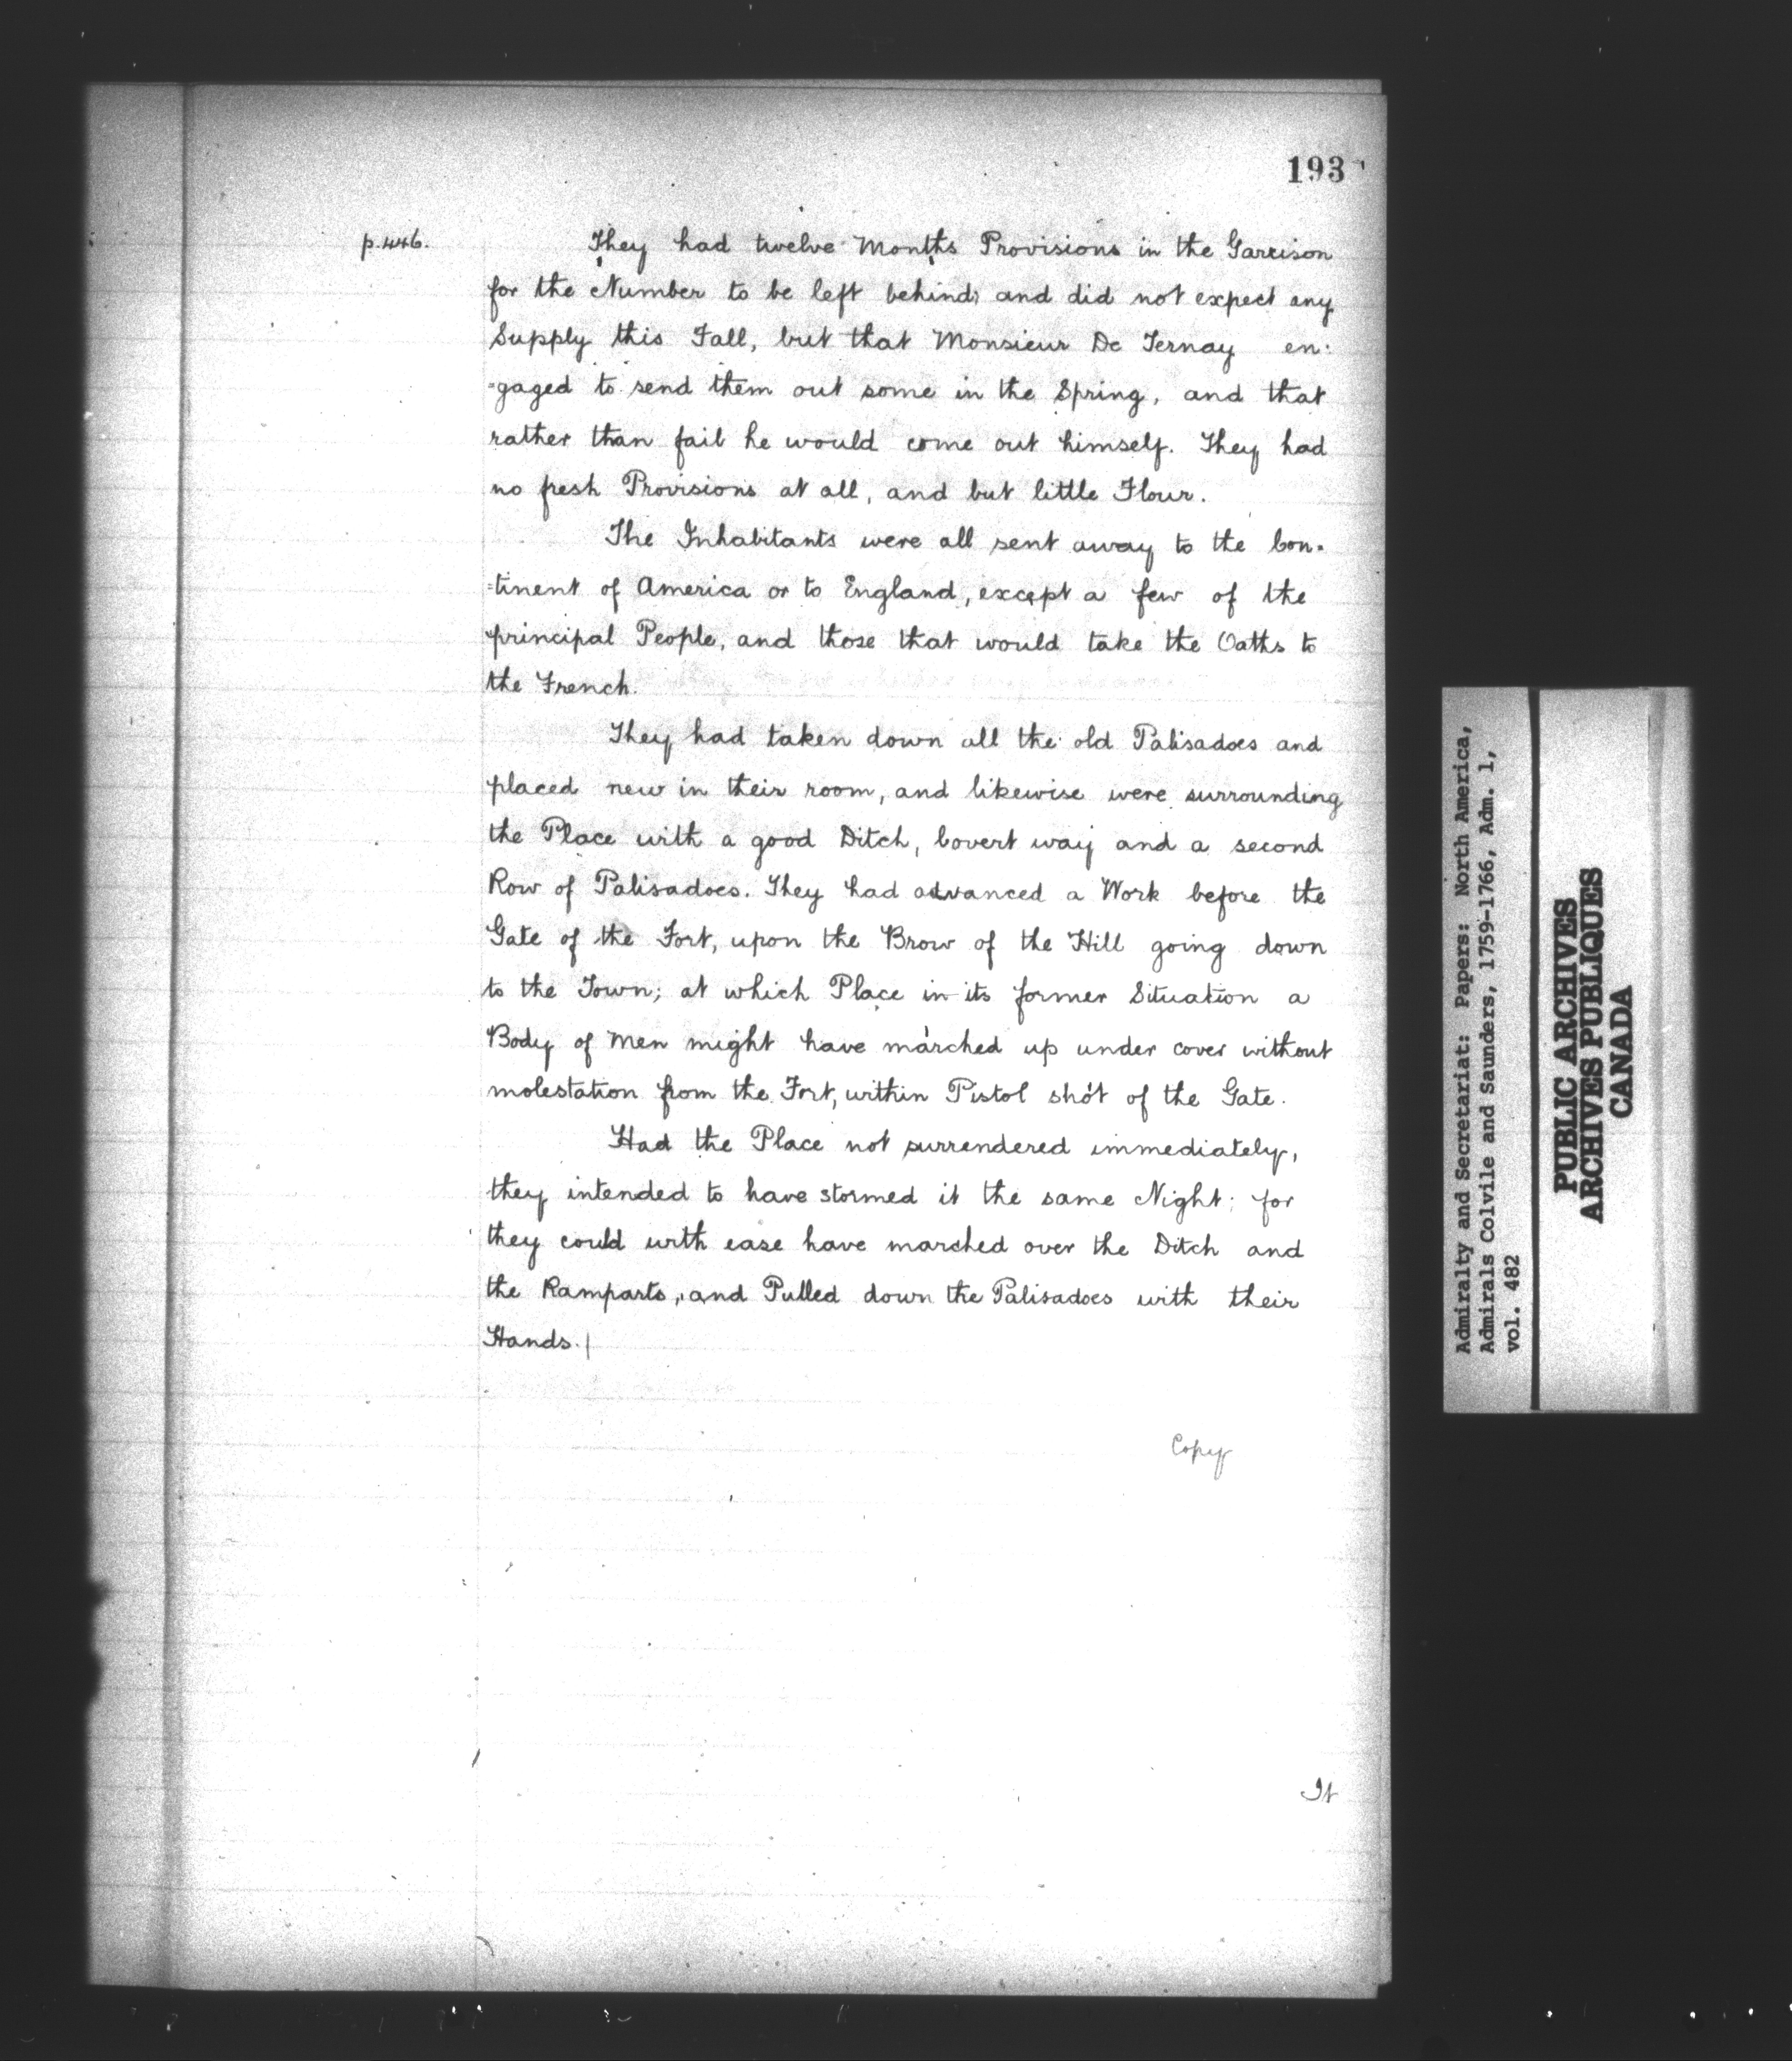 193
p. 446.
They had twelve Months Provisions in the Garrison
for the Number to be left behind; and did not expect any
Supply this Fall, but that Monsieur De Ternay en:
=gaged to send them out some in the Spring, and that
rather than fail he would come out himself. They had
no fresh Provisions at all, and but little Flour.
The Inhabitants were all sent away to the Con=
=tinent of America or to England, except a few of the
principal People, and those that would take the Oaths to
the French.
They had taken down all the old Palisadoes and
placed new in their room, and likewise were surrounding
the Place with a good Ditch, Covert way and a second
Row of Palisadoes. They had advanced a Work before the
Gate of the Fort, upon the Brow of the Hill going down
to the Town; at which Place in its former Situation a
Body of Men might have marched up under cover without
molestation from the Fort, within Pistol shot of the Gate.
Had the Place not surrendered immediately,
they intended to have stormed it the same Night; for
they could with ease have marched over the Ditch and
the Ramparts, and Pulled down the Palisadoes with their
Hands.
Copy
It
Admiralty and Secretariat: Papers: North America,
Admirals Colvile and Saunders, 1759-1766, Adm. 1,
vol. 482
PUBLIC ARCHIVES
ARCHIVES PUBLIQUES
CANADA